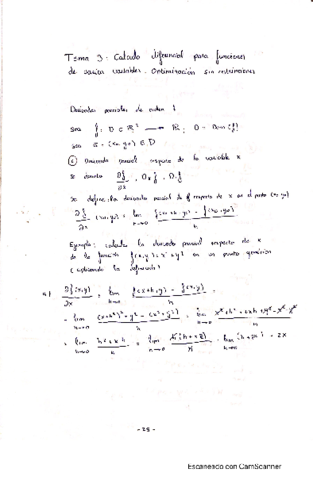 Tema 3: Calculo diferencial para funciones
de varias variables. Optimización sin restricciones
Derivadas parciales de orden 1
Sea f: D ⊂ ℝ² → ℝ ; D = Dom(f)
sea a = (x₀, y₀) ∈ D
Derivada parcial respecto de la variable x
Se denota ∂f/∂x , Dₓf , D₁f
Se define la derivada parcial de f respecto de x en el punto (x₀, y₀)
∂f/∂x (x₀, y₀) = lim h→0 f(x₀+h, y₀) - f(x₀, y₀) / h
Ejemplo: calcular la derivada parcial respecto de x
de la función f(x,y) = x² + y² en un punto genérico
(utilizando la definición)
a) ∂f(x,y)/∂x = lim h→0 f(x+h, y) - f(x,y) / h =
= lim h→0 (x+h)² + y² - (x² + y²) / h = lim h→0 x² + h² + 2xh + y² - x² - y² / h
= lim h→0 h² + 2xh / h = lim h→0 h(h + 2x) / h = lim h→0 (h + 2x) = 2x
- 25 -
Escaneado con CamScanner